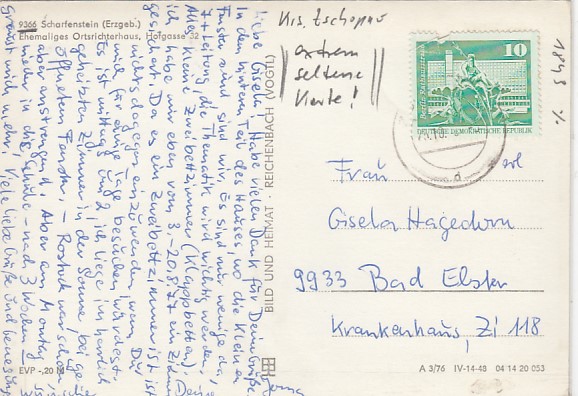 9366 Scharfenstein (Erzgeb.)
Ehemaliges Ortsrichterhaus, Hofgasse 32
Krs. Zschopau
extrem
seltene
Karte!
1845
10
DEUTSCHE DEMOKRATISCHE REPUBLIK
BILD UND HEIMAT · REICHENBACH (VOGTL)
Liebe Gisela! Habe vielen Dank für Deine Grüße
In den hintern Teil des Hauses, wo die Kleinen
Fenster sind sind wir. Es sind nur wenige da,
7 + Leitung, die Thematik wird wichtig werden.
Alles kleine Zweibettzimmer (Klappbetten).
ich habe nur eben vom 3.-20.8.77 ein Zimmer
gesichert. Da es ein Zweibettzimmer ist
nichts dagegen einzuwenden, wenn Du
mich für einige Tage besuchen würdest.
Es ist mittags und ich liege in herrlich
geheizten Zimmer in der Sonne, bei ge-
öffneten Fenster. – Rostock war schön
aber anstrengend. Aber am Montag
wieder in die Schule – nach 3 Wochen
graust mich mehr. Viele liebe Grüße und
Frau
Gisela Hagedorn
9933 Bad Elster
Krankenhaus, Zi 118
EVP -,20 M
A 3/76 IV-14-48 04 14 20 053